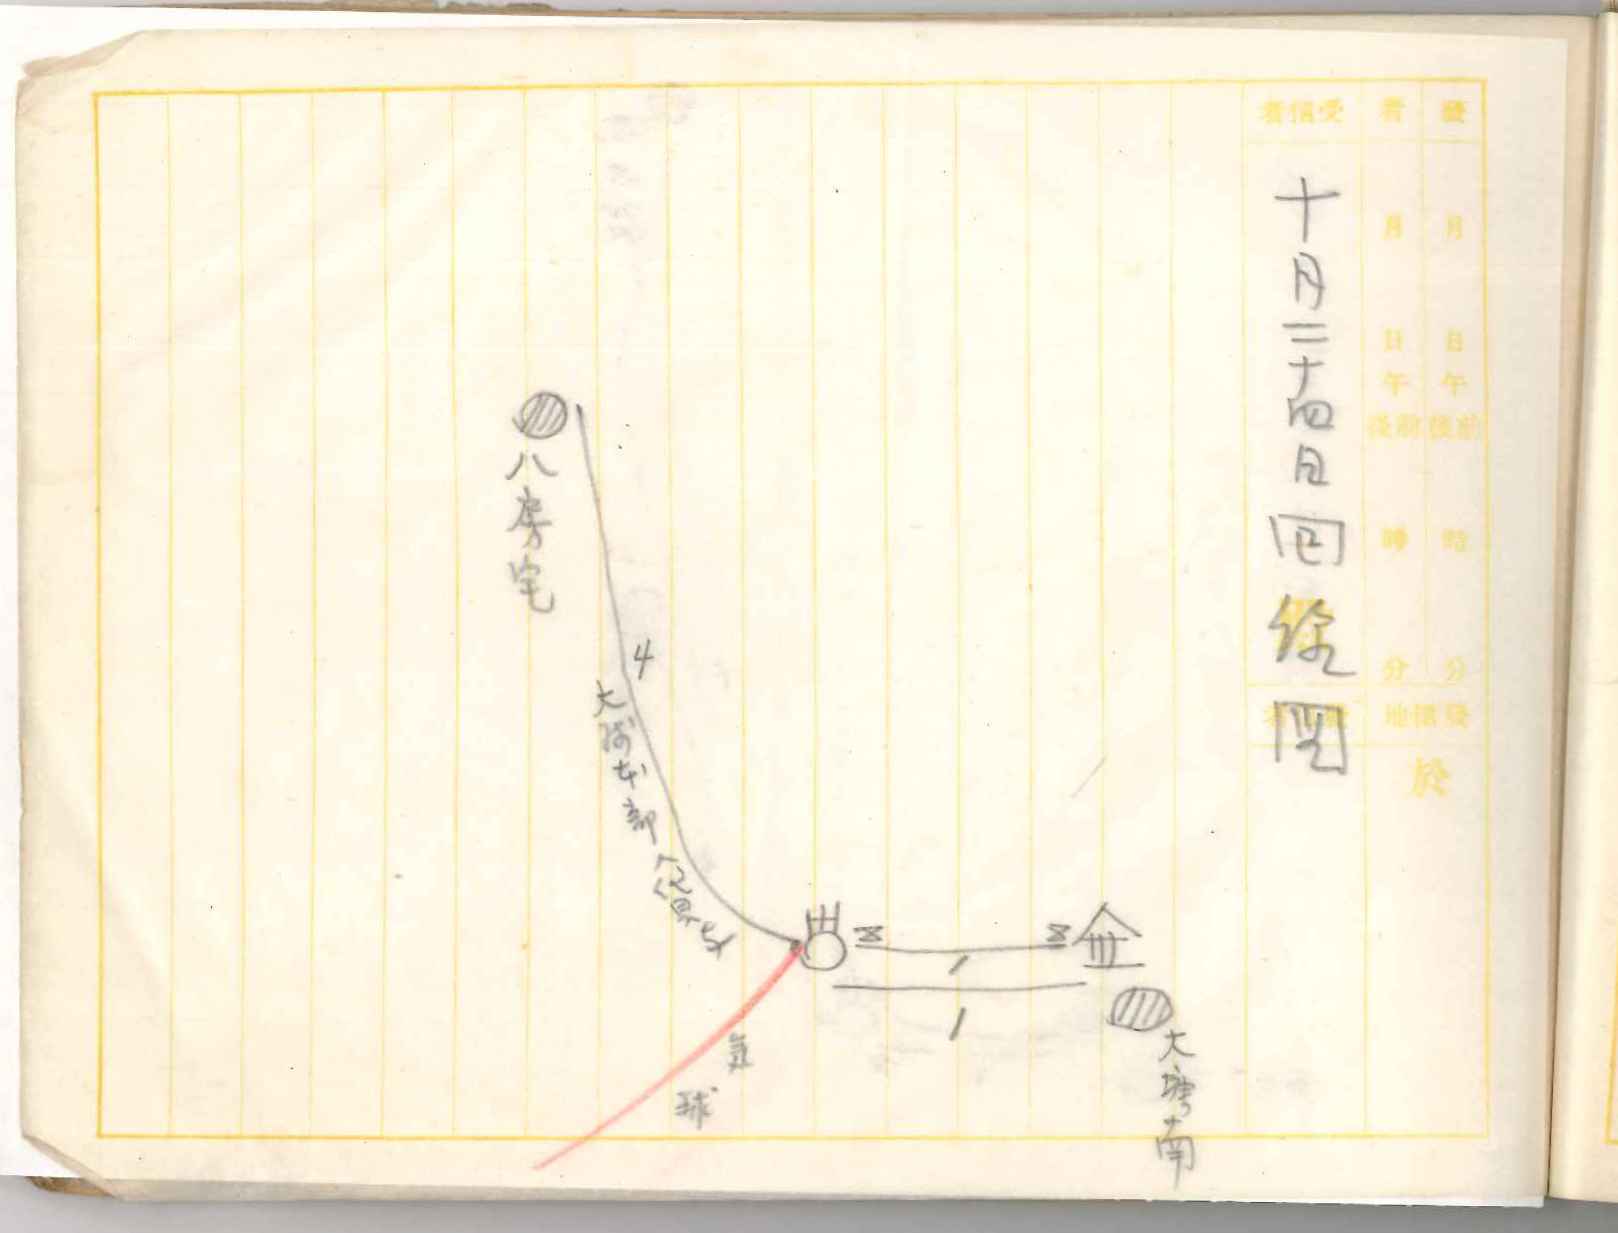 發
月
日
午
前後
時
分
者
月
日
午
前後
時
分
發信地
於
受信者
十月二十四日回線図
大塘南
1
1
気球
4
大隊本部
八房宅